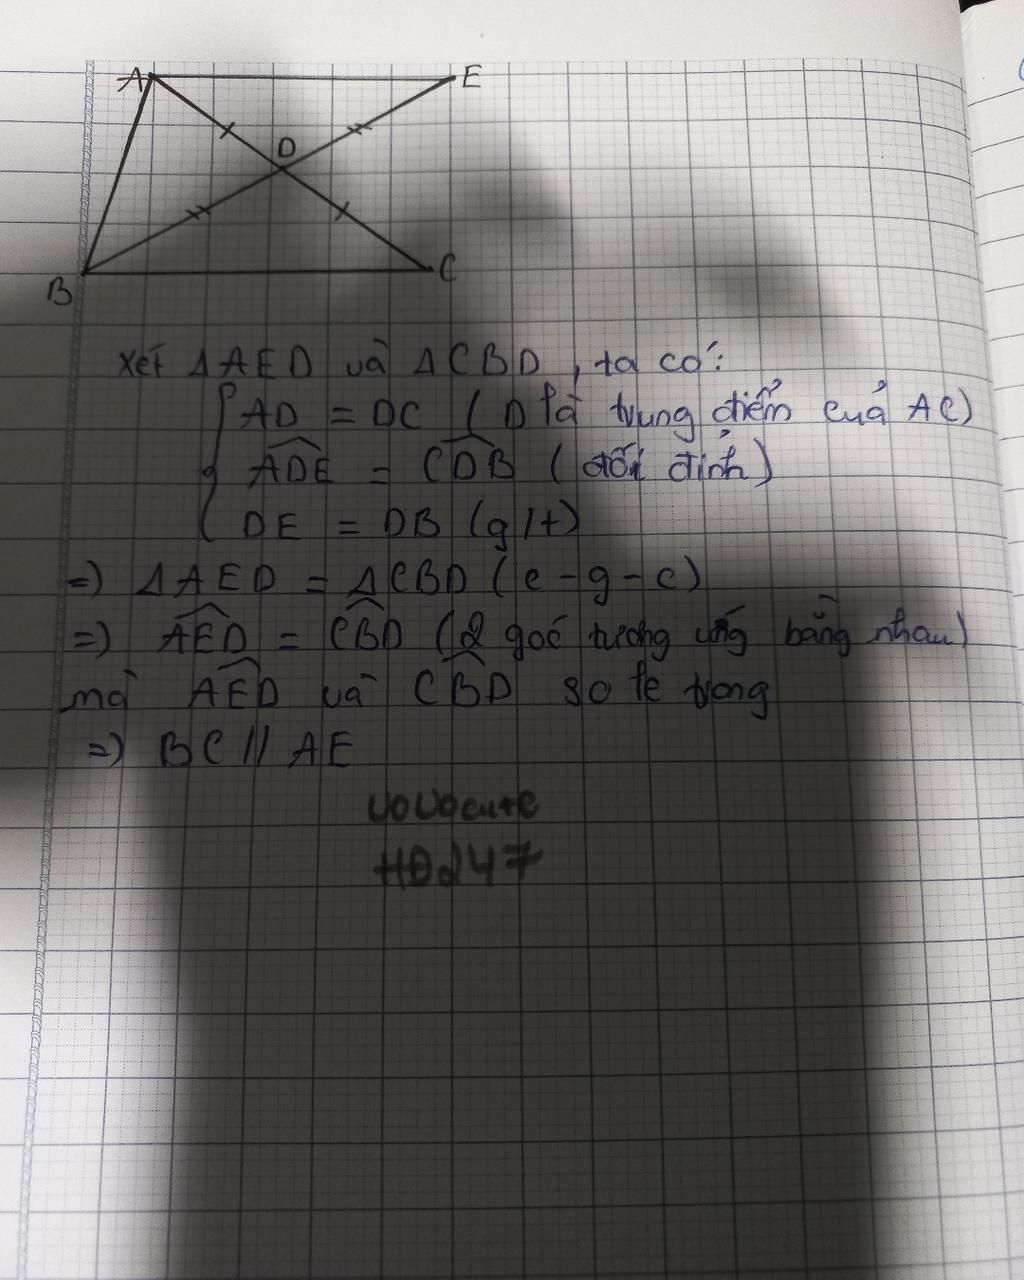 A
E
D
B
C
Xét ΔAED và ΔCBD, ta có:
AD = DC (D là trung điểm của AC)
\widehat{ADE} = \widehat{CDB} (đối đỉnh)
DE = DB (g/t)
=) ΔAED = ΔCBD (c-g-c)
=) \widehat{AED} = \widehat{CBD} (2 góc tương ứng bằng nhau)
mà \widehat{AED} và \widehat{CBD} so le trong
=) BC // AE
UoUocute
HĐ247